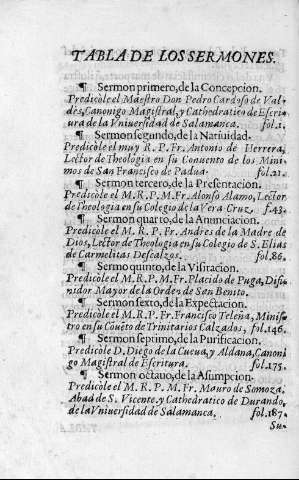 TABLA DE LOS SERMONES.
¶ Sermon primero, de la Concepcion.
Predicòle el Maestro Don Pedro Cardoso de Val-
dès, Canonigo Magistral, y Cathedratico de Escri-
ura de la Vniuersidad de Salamanca. fol.1.
¶ Sermon segundo, de la Natiuidad.
Predicòle el muy R. P. Fr. Antonio de Herrera,
Lector de Theologia en su Conuento de los Mini-
mos de San Francisco de Padua. fol.21.
¶ Sermon tercero, de la Presentacion.
Predicòle el M.R.P.M.Fr. Alonso Alamo, Lector
de Theologia en su Colegio de la Vera Cruz, f.43.
¶ Sermon quarto, de la Anunciacion.
Predicòle el M. R. P. Fr. Andres de la Madre de
Dios, Lector de Theologia en su Colegio de S. Elias
de Carmelitas Descalços. fol.86.
¶ Sermo quinto, de la Visitacion.
Predicòle el M.R.P.M.Fr. Placido de Puga, Difi-
nidor Mayor de la Ordẽ de San Benito.
¶ Sermon sexto, de la Expectacion.
Predicòle el M.R.P.Fr. Francisco Teleña, Minis-
tro en su Couẽto de Trinitarios Calzados, fol.146.
¶ Sermon septimo, de la Purificacion.
Predicòle D. Diego de la Cueua, y Aldana, Canoni
go Magistral de Escritura. fol.175.
¶ Sermon octauo, de la Asumpcion.
Predicòle el M. R. P. M. Fr. Mauro de Somoza,
Abad de S. Vicente, y Cathedratico de Durando,
de la Vniuersidad de Salamanca, fol.187.
Su-